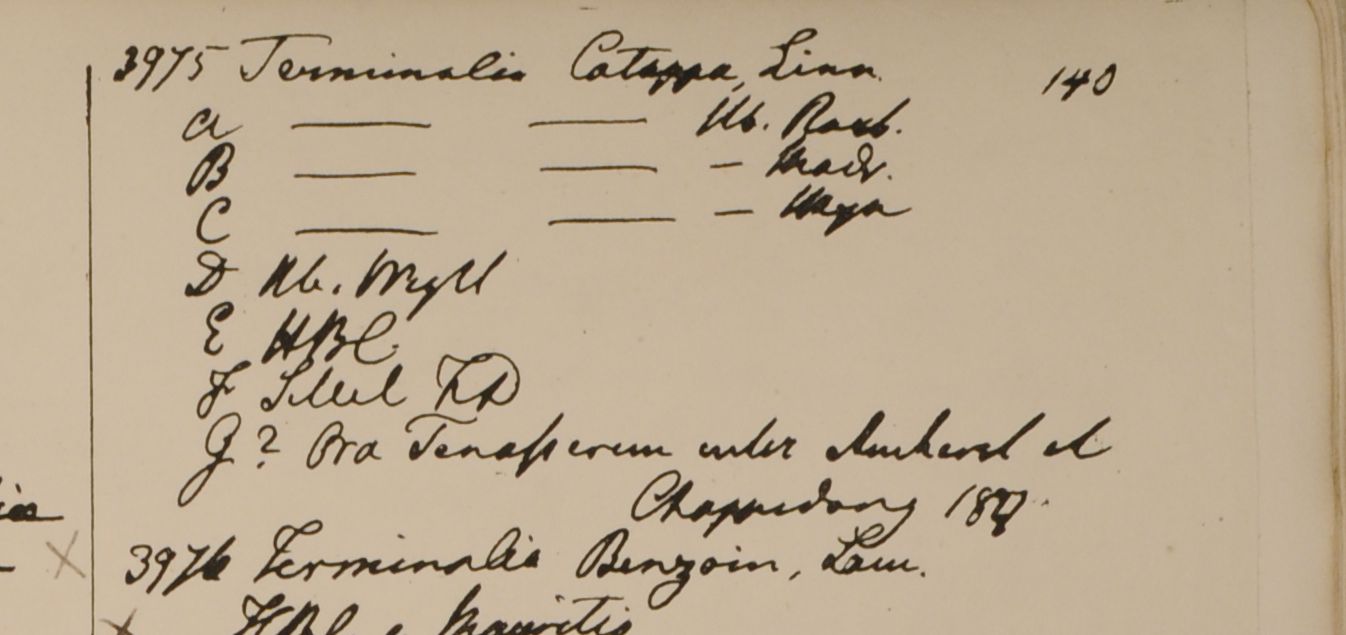 3975 Terminalia Catappa, Linn. 140
a — — Hb. Roxb.
B — — — Madr.
C — — — Heyn
D Hb. Wight
E HBC.
F Silhet FD
G? Ora Tenasserim inter Amherst et
Chappedong 1827.
3976 Terminalia Benzoin, Lin.
HBC e Mauritio